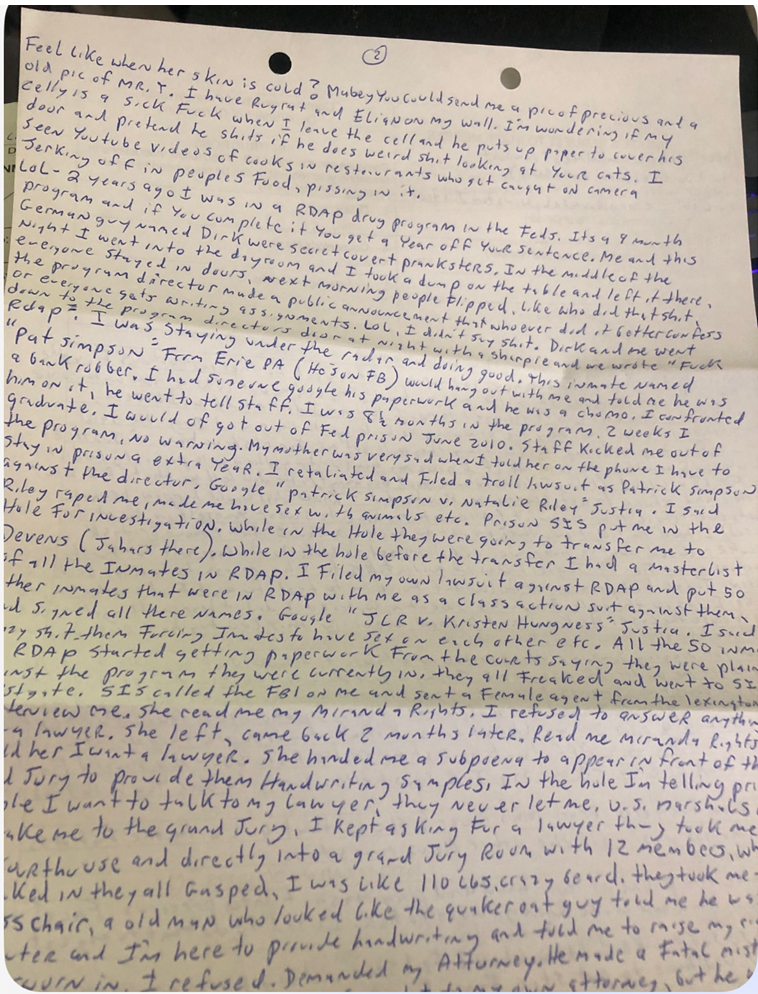 2
Feel like when her skin is cold? Mabey You could send me a pic of precious and a
old pic of MR. T. I have Rugrat and Elian on my wall. I'm wondering if my
celly is a sick Fuck when I leave the cell and he puts up paper to cover his
door and pretend he shits if he does weird shit looking at your cats. I
seen Youtube videos of cooks in restaurants who get caught on camera
Jerking off in peoples Food, pissing in it.
LoL - 2 years ago I was in a RDAP drug program in the Feds. Its a 9 month
program and if You complete it You get a Year off Your sentence. Me and this
German guy named Dirk were secret covert pranksters. In the middle of the
night I went into the dayroom and I took a dump on the table and left it there,
everyone stayed in doors, next morning people flipped, like who did that shit,
the program director made a public announcement that whoever did it better confess
or everyone gets writing assignments. LoL, I didn't say shit. Dirk and me went
down to the program directors door at night with a sharpie and we wrote "Fuck
Rdap". I was staying under the radar and doing good. This inmate named
"Pat Simpson" From Erie PA (He's on FB) would hang out with me and told me he was
a bank robber. I had someone google his paperwork and he was a chomo. I confronted
him on it, he went to tell staff. I was 8½ months in the program, 2 weeks I
graduate. I would of got out of Fed prison June 2010. Staff kicked me out of
the program, no warning. My mother was very sad when I told her on the phone I have to
stay in prison a extra Year. I retaliated and Filed a troll lawsuit as Patrick Simpson
against the director, Google "Patrick Simpson v. Natalie Riley" Justia. I said
Riley raped me, made me have sex with animals etc. Prison SIS put me in the
Hole For investigation. While in the Hole they were going to transfer me to
Devens (Jahars there). While in the hole before the transfer I had a masterlist
of all the INmates in RDAP. I Filed my own lawsuit against RDAP and put 50
ther inmates that were in RDAP with me as a class action suit against them,
d signed all there Names. Google "JLR v. Kristen Hungness" Justia. I said
zy shit them Forcing Inmates to have sex on each other etc. All the 50 inm
RDAP started getting paperwork From the courts saying they were plain
inst the program they were currently in, they all Freaked and went to SI
stgate. SIS called the FBI on me and sent a Female agent from the lexington
terview me. She read me my Miranda Rights. I refused to answer anythin
a lawyer. She left, came back 2 months later. Read me Miranda Rights
ld her I want a lawyer. She handed me a subpoena to appear in front of th
d Jury to provide them Handwriting samples. In the hole I'm telling pri
ple I want to talk to my lawyer, they never let me. U.S. marshals
ake me to the grand Jury, I kept asking For a lawyer they took me
ourthouse and directly into a grand Jury Room with 12 members, wh
ked in they all Gasped, I was like 110 Lbs, crazy beard. they took me
ss chair, a old man who looked like the quaker oat guy told me he wa
and told me to raise my ri
ter and I'm here to provide handwriting
He made a Fatal mist
I refused. Demanded my Atturney.
my own attorney, but he